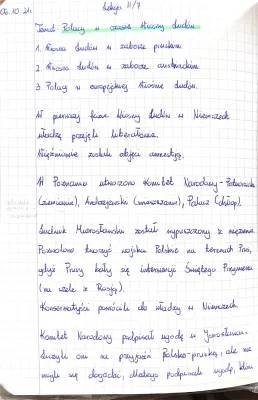 06.10.21r. Lekcja 11/7
Temat: Polacy w czasie Wiosny Ludów
1. Wiosna Ludów w zaborze pruskim.
2. Wiosna Ludów w zaborze austriackim.
3. Polacy w europejskiej Wiośnie Ludów.
W pierwszej fazie Wiosny Ludów w Niemczech
władzę przejęli liberałowie.
Więźniowie zostali objęci amnestią.
W Poznaniu utworzono Komitet Narodowy -
(ziemianin), Andrzejewski (), Palacz (chłop).
Ludwik Mierosławski został wypuszczony z więzienia
Pozwolono tworzyć wojsko Polskie na terenach Prus,
gdyż Prusy bały się interwencji Świętego Przymierza
(na czele z Rosją).
Konserwatyści powrócili do władzy w Niemczech.
Komitet Narodowy podpisał ugodę w Jarosławcu.
Liczyli oni na przyjaźń Polsko-pruską, ale nie
mogli się dogadać, dlatego podpisali ugodę,